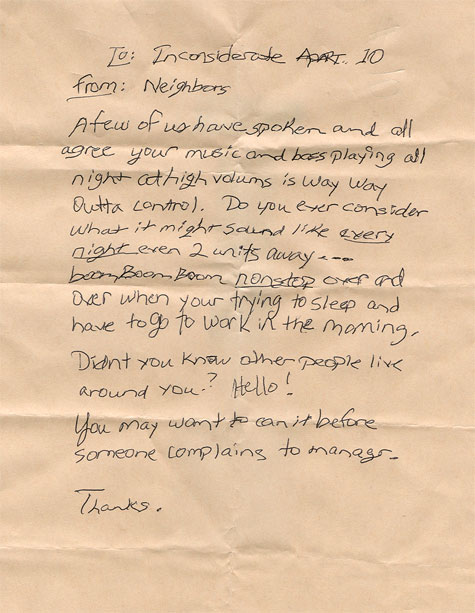 To: Inconsiderate APART. 10
From: Neighbors
A few of us have spoken and all
agree your music and bass playing all
night at high volums is way way
Outta control. Do you ever consider
what it might sound like every
night even 2 units away ---
boom Boom Boom nonstop over and
over when your trying to sleep and
have to go to work in the morning.
Didnt you know other people live
around you? Hello!
You may want to can it before
someone complains to managr.
Thanks.